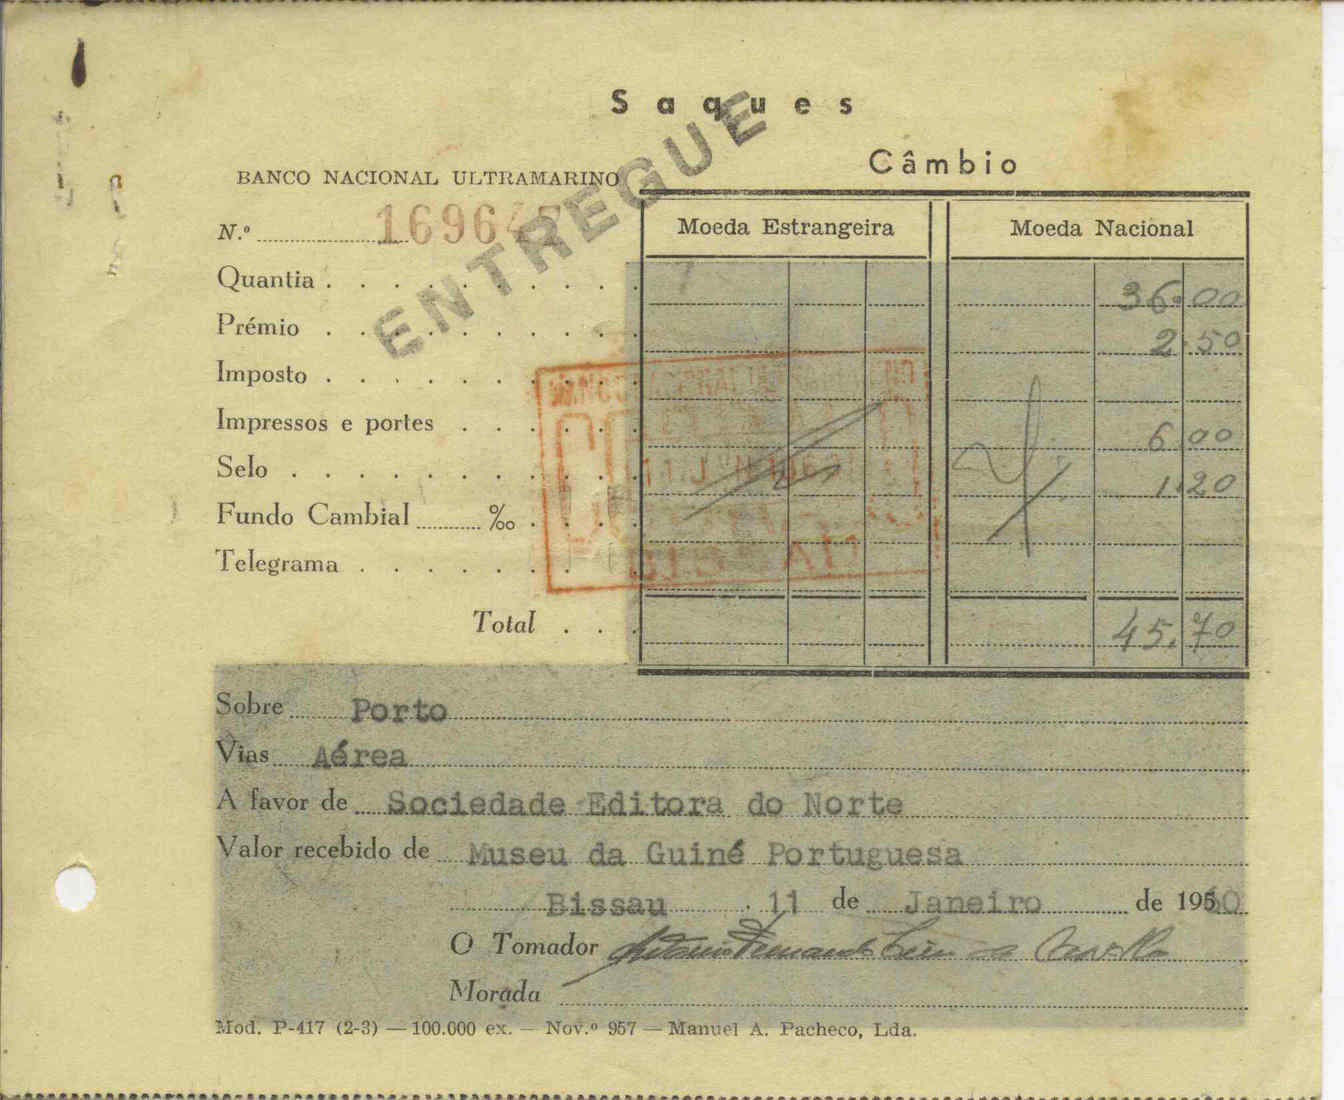 Saques
Câmbio
ENTREGUE
BANCO NACIONAL ULTRAMARINO
Moeda Estrangeira Moeda Nacional
N.º
Quantia . . . . . . . . . . 36.00
Prémio . . . . . . . . . . 2.50
Imposto . . . . . . . . . .
Impressos e portes . . . . . 6.00
Selo . . . . . . . . . . . 1.20
Fundo Cambial ......... ‰ . . .
Telegrama . . . . . . .
Total . . . 45.70
Sobre Porto
Vias Aérea
A favor de Sociedade Editora do Norte
Valor recebido de Museu da Guiné Portuguesa
Bissau 11 de Janeiro de 1960
O Tomador
Morada
Mod. P-417 (2-3) — 100.000 ex. — Nov.º 957 — Manuel A. Pacheco, Lda.